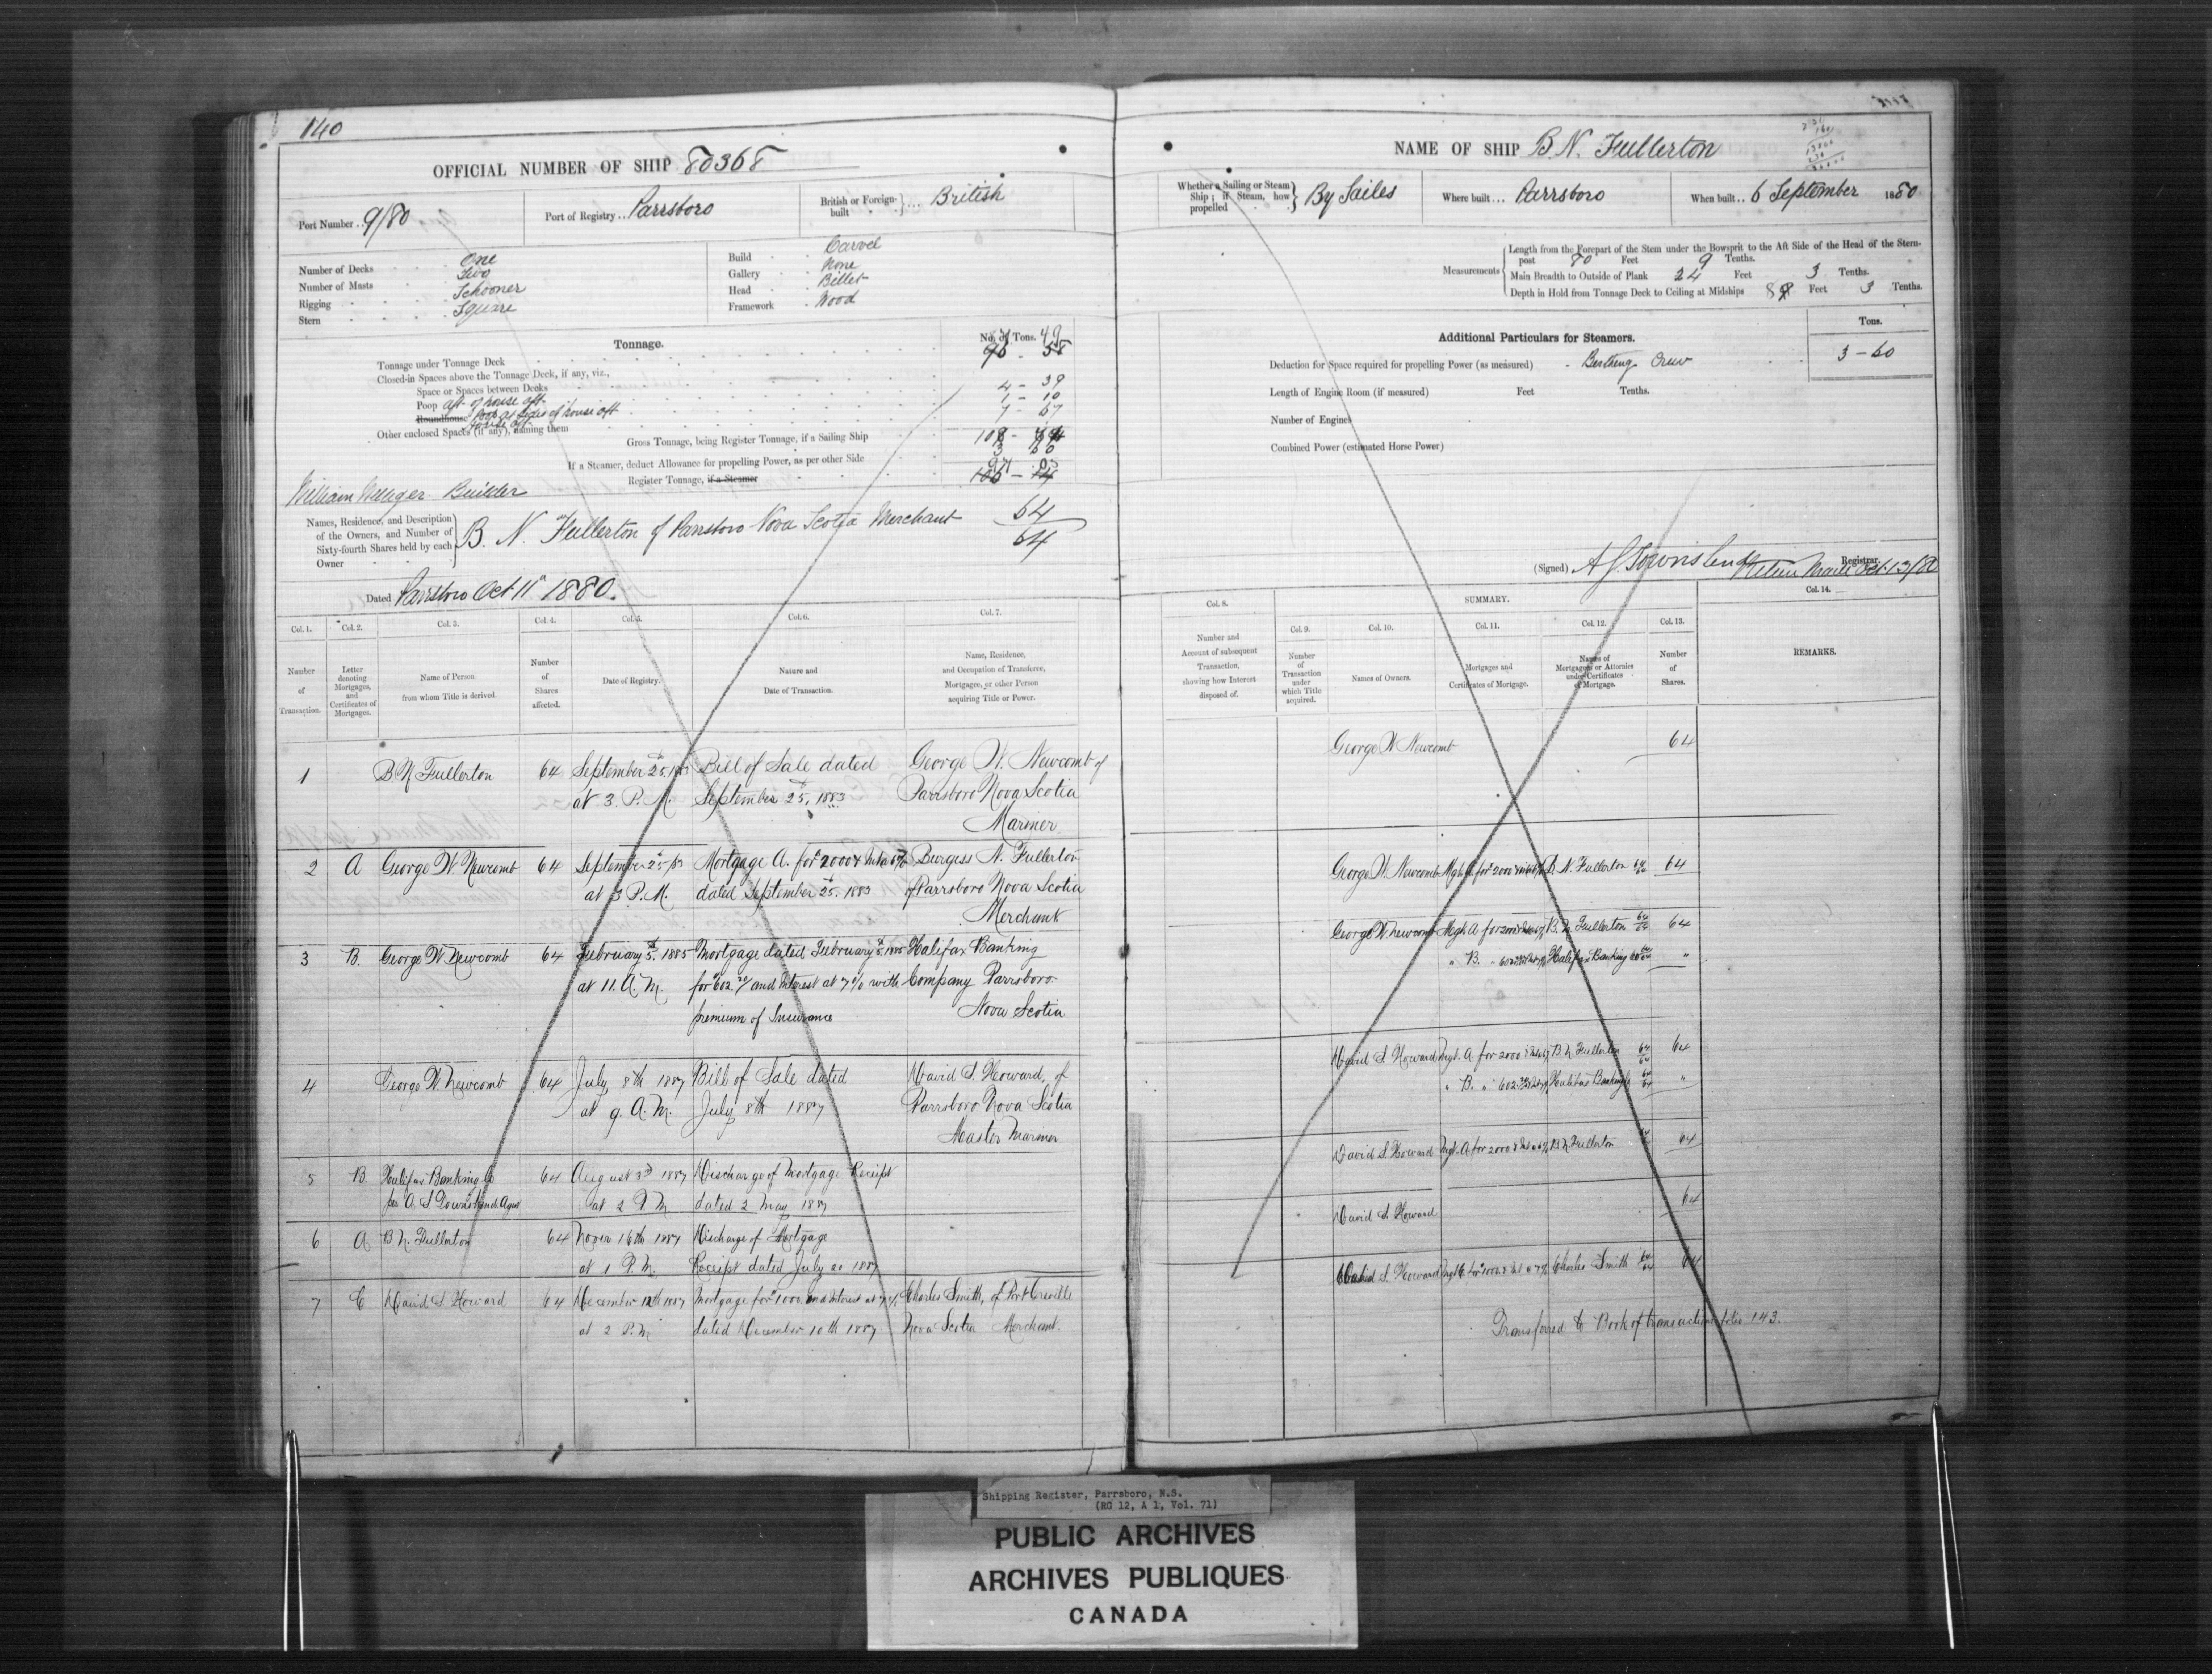 140
OFFICIAL NUMBER OF SHIP 80368
Port Number .. 9/80
Port of Registry .. Parrsboro
British or Foreign-built } ... British
Number of Decks One
Number of Masts Two
Rigging Schooner
Stern Square
Build Carvel
Gallery None
Head Billet
Framework Wood
Tonnage.
No. of Tons.
Tonnage under Tonnage Deck
Closed-in Spaces above the Tonnage Deck, if any, viz.,
Space or Spaces between Decks 4 - 39
Poop aft of house aft 1 - 10
Roundhouse Poop at sides of house aft 7 - 67
Other enclosed Spaces (if any), naming them House aft
Gross Tonnage, being Register Tonnage, if a Sailing Ship
If a Steamer, deduct Allowance for propelling Power, as per other Side 3 60
Register Tonnage, if a Steamer
William Builder
Names, Residence, and Description of the Owners, and Number of Sixty-fourth Shares held by each Owner } B. N. Fullerton of Parrsboro Nova Scotia Merchant 64/64
Dated Parrsboro Oct 11th 1880.
Col. 1. Col. 2. Col. 3. Col. 4. Col. 5. Col. 6. Col. 7.
Number of Transaction.
Letter denoting Mortgages, and Certificates of Mortgages.
Name of Person from whom Title is derived.
Number of Shares affected.
Date of Registry.
Nature and Date of Transaction.
Name, Residence, and Occupation of Transferee, Mortgagee, or other Person acquiring Title or Power.
1 B N Fullerton 64 September 25th Bill of Sale dated George W. Newcomb of
at 3. P. M. September 25th, 1883 Parrsboro Nova Scotia
Mariner
2 A George W. Newcomb 64 September 25th/83 Mortgage A. for $2000 & Burgess N. Fullerton
at 3 P. M. dated September 25th. 1883 of Parrsboro Nova Scotia
Merchant
3 B. George W Newcomb 64 February 5th. 1885 Mortgage dated February 5th. 1885 Halifax Banking
at 11. A. M. for $602. and Interest at 7% with Company Parrsboro
premium of Insurance Nova Scotia
4 George W. Newcomb 64 July 8th 1887 Bill of Sale dated David S. Howard, of
at 9. A. M. July 8th 1887 Parrsboro Nova Scotia
Master Mariner
5 B. Halifax Banking Co 64 August 3rd 1887 Discharge of Mortgage Receipt
per A S Townshend Agent at 2 P. M. dated 2 May 1887
6 A B. N. Fullerton 64 Novr 16th 1887 Discharge of Mortgage
at 1 P. M. Receipt dated July 20 1887
7 C David S Howard 64 December 12th 1887 Mortgage for $1000. and Interest at 7% Charles Smith, of Port Greville
at 2 P. M dated December 10th 1887 Nova Scotia Merchant.
NAME OF SHIP B. N. Fullerton
Whether a Sailing or Steam Ship; if Steam, how propelled } By Sailes
Where built ... Parrsboro
When built .. 6 September 1880
Measurements
Length from the Forepart of the Stem under the Bowsprit to the Aft Side of the Head of the Stern-post 80 Feet 9 Tenths.
Main Breadth to Outside of Plank 24 Feet 3 Tenths.
Depth in Hold from Tonnage Deck to Ceiling at Midships 8 Feet 3 Tenths.
Additional Particulars for Steamers.
Tons.
Deduction for Space required for propelling Power (as measured) Berthing Crew 3 - 60
Length of Engine Room (if measured) Feet Tenths.
Number of Engines
Combined Power (estimated Horse Power)
(Signed) A S Townshend Registrar.
Return Made Oct 13/80
Col. 8. SUMMARY. Col. 14.
Col. 9. Col. 10. Col. 11. Col. 12. Col. 13.
Number and Account of subsequent Transaction, showing how Interest disposed of.
Number of Transaction under which Title acquired.
Names of Owners.
Mortgages and Certificates of Mortgage.
Names of Mortgagees or Attornies under Certificates of Mortgage.
Number of Shares.
REMARKS.
George W Newcomb 64
George W. Newcomb Mgh A for 2000 B. N. Fullerton 64/64 64
George W Newcomb Mgh A for 2000 B. N. Fullerton 64/64 64
" B. " 602 Halifax Banking Co 64/64 "
David S. Howard Mgt. A for 2000 B N Fullerton 64/64 64
" B. " 602 Halifax Banking Co 64/64 "
David S Howard Mgt. A for 2000 B N Fullerton 64
David S. Howard 64
David S. Howard Mgt C for $1000 Charles Smith 64/64 64
Transferred to Book of transactions folio 143.
Shipping Register, Parrsboro, N.S.
(RG 12, A 1, Vol. 71)
PUBLIC ARCHIVES
ARCHIVES PUBLIQUES
CANADA